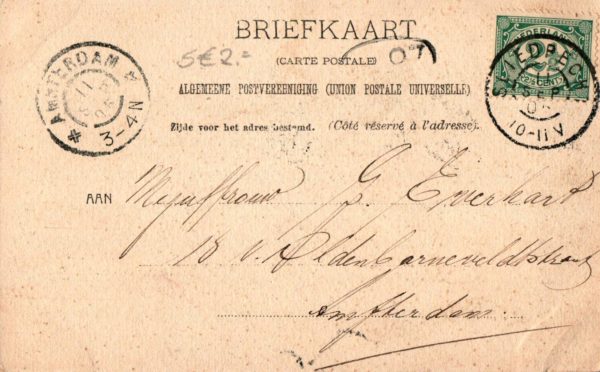 BRIEFKAART
5€2.-
(CARTE POSTALE)
07
ALGEMEENE POSTVEREENIGING (UNION POSTALE UNIVERSELLE)
Zijde voor het adres bestemd. (Côté réservé à l'adresse).
AMSTERDAM
11
SEP
05
3-4 N
NEDERLAND
2½
CENT
11
SEP
05
10-11 V
AAN Mejuffrouw G. Everhard
18 v. Oldenbarneveldtstraat
Amsterdam.